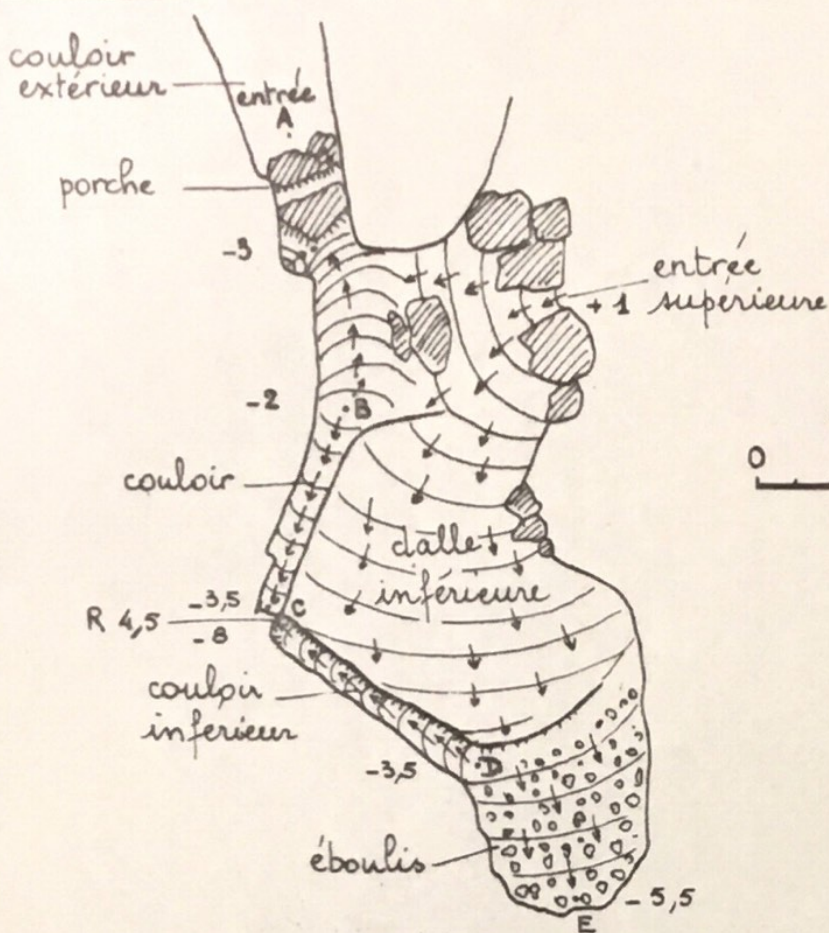 couloir
extérieur
entrée
A
porche
-3
entrée
supérieure
+1
-2
B
couloir
0
dalle
inférieure
-3,5
C
R 4,5
-8
couloir
inferieur
-3,5
D
éboulis
-5,5
E